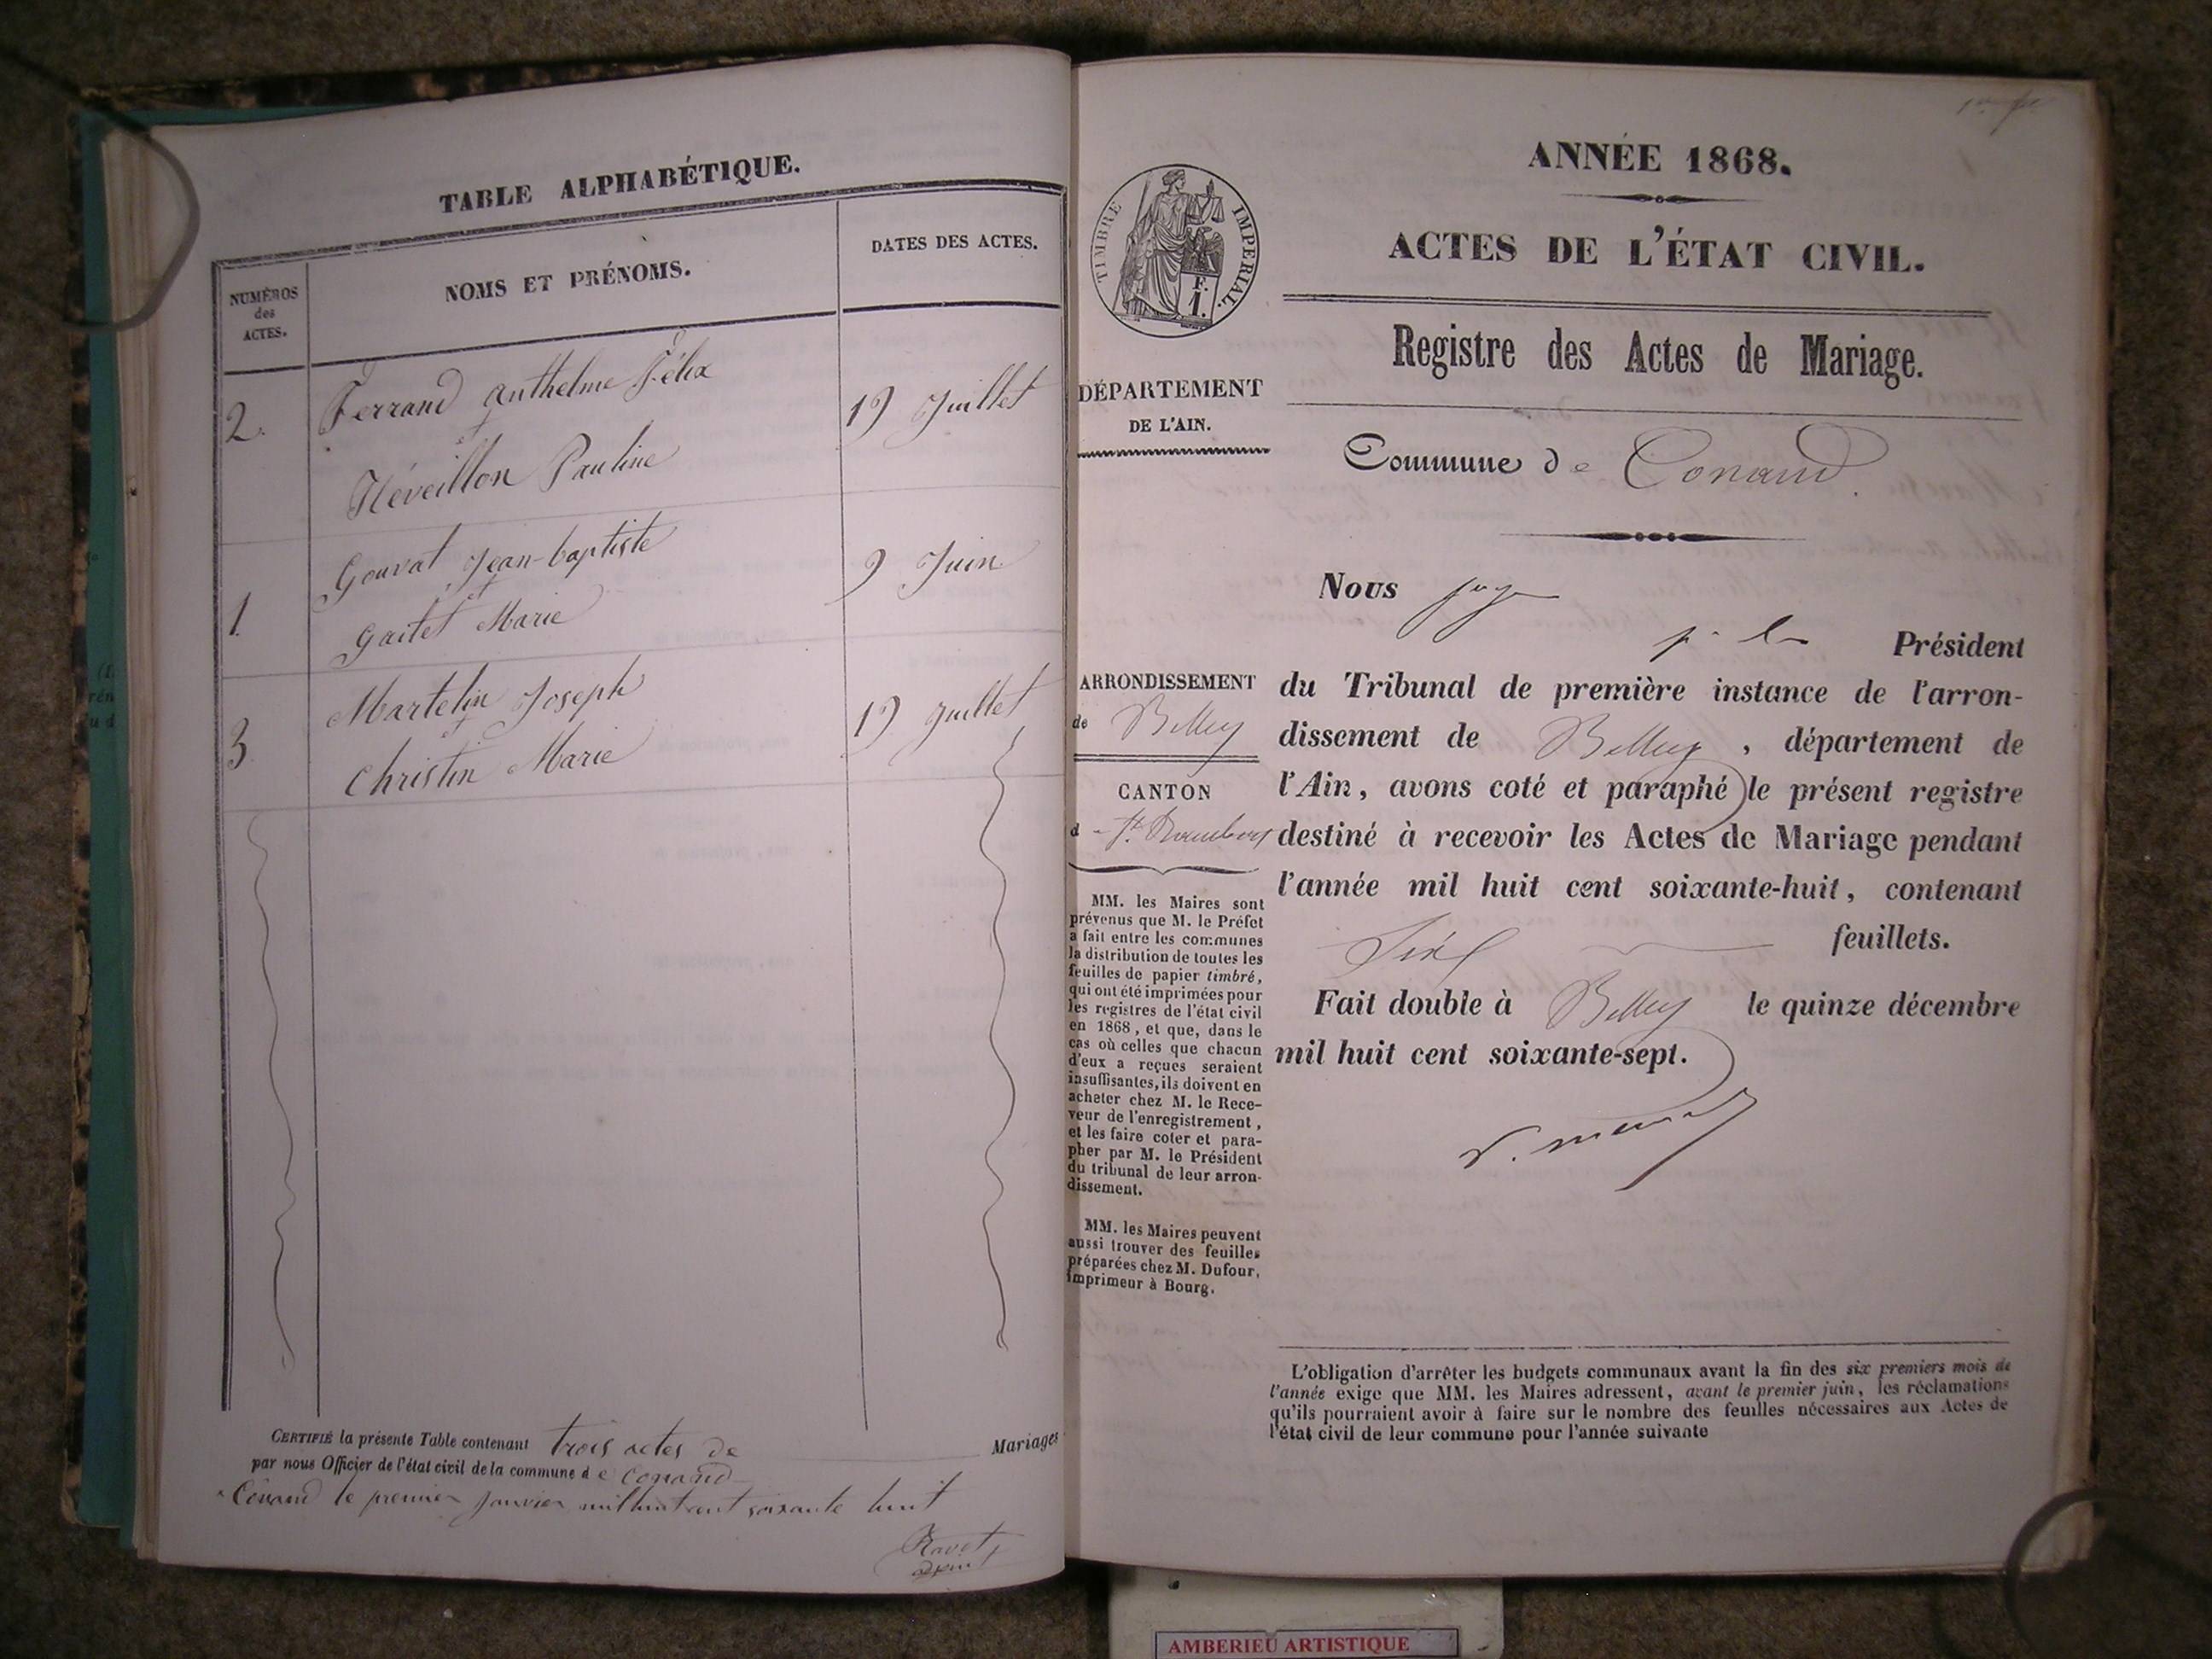 TABLE ALPHABÉTIQUE.
NUMÉROS
des
ACTES.
NOMS ET PRÉNOMS.
DATES DES ACTES.
2. Ferrand Anthelme Félix 19 Juillet
et
Réveillon Pauline
Gouvat Jean-baptiste 9 Juin
1. et
Gaitet Marie
Martelin Joseph 19 Juillet
3. et
Christin Marie
CERTIFIÉ la présente Table contenant trois actes de Mariages
par nous Officier de l'état civil de la commune de Conand
Conand le premier Janvier mil huit cent soixante huit
Ravet
adjoint
ANNÉE 1868.
ACTES DE L'ÉTAT CIVIL.
TIMBRE IMPÉRIAL.
F.
1.
Registre des Actes de Mariage.
DÉPARTEMENT
DE L'AIN.
Commune de Conand.
Nous juge
p. le Président
du Tribunal de première instance de l'arron-
dissement de Belley, département de
l'Ain, avons coté et paraphé le présent registre
destiné à recevoir les Actes de Mariage pendant
l'année mil huit cent soixante-huit, contenant
feuillets.
Fait double à Belley le quinze décembre
mil huit cent soixante-sept.
ARRONDISSEMENT
de Belley
CANTON
d St. Rambert
MM. les Maires sont
prévenus que M. le Préfet
a fait entre les communes
la distribution de toutes les
feuilles de papier timbré,
qui ont été imprimées pour
les registres de l'état civil
en 1868, et que, dans le
cas où celles que chacun
d'eux a reçues seraient
insuffisantes, ils doivent en
acheter chez M. le Rece-
veur de l'enregistrement,
et les faire coter et para-
pher par M. le Président
du tribunal de leur arron-
dissement.
MM. les Maires peuvent
aussi trouver des feuilles
préparées chez M. Dufour,
imprimeur à Bourg.
L'obligation d'arrêter les budgets communaux avant la fin des six premiers mois de
l'année exige que MM. les Maires adressent, avant le premier juin, les réclamations
qu'ils pourraient avoir à faire sur le nombre des feuilles nécessaires aux Actes de
l'état civil de leur commune pour l'année suivante
AMBERIEU ARTISTIQUE